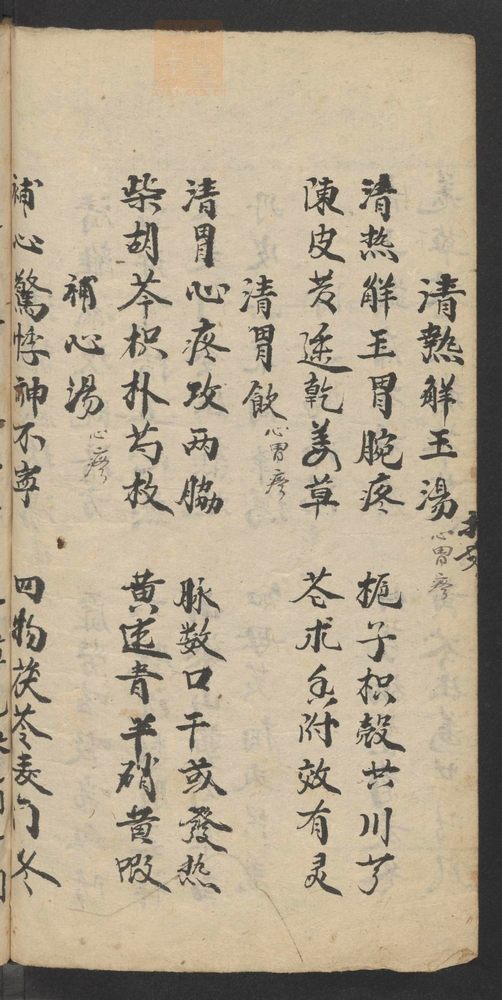 清熱解玉湯 心胃疼
清热解玉胃脘疼 梔子枳殼共川芎
陳皮黃连乾姜草 苍术香附效有灵
清胃飲 心胃疼
清胃心疼攻两脇 脉数口干或發热
柴胡芩枳朴芍枝 黄连青半硝黄
補心湯 心疼
補心驚悸神不寧 四物茯苓麦门冬